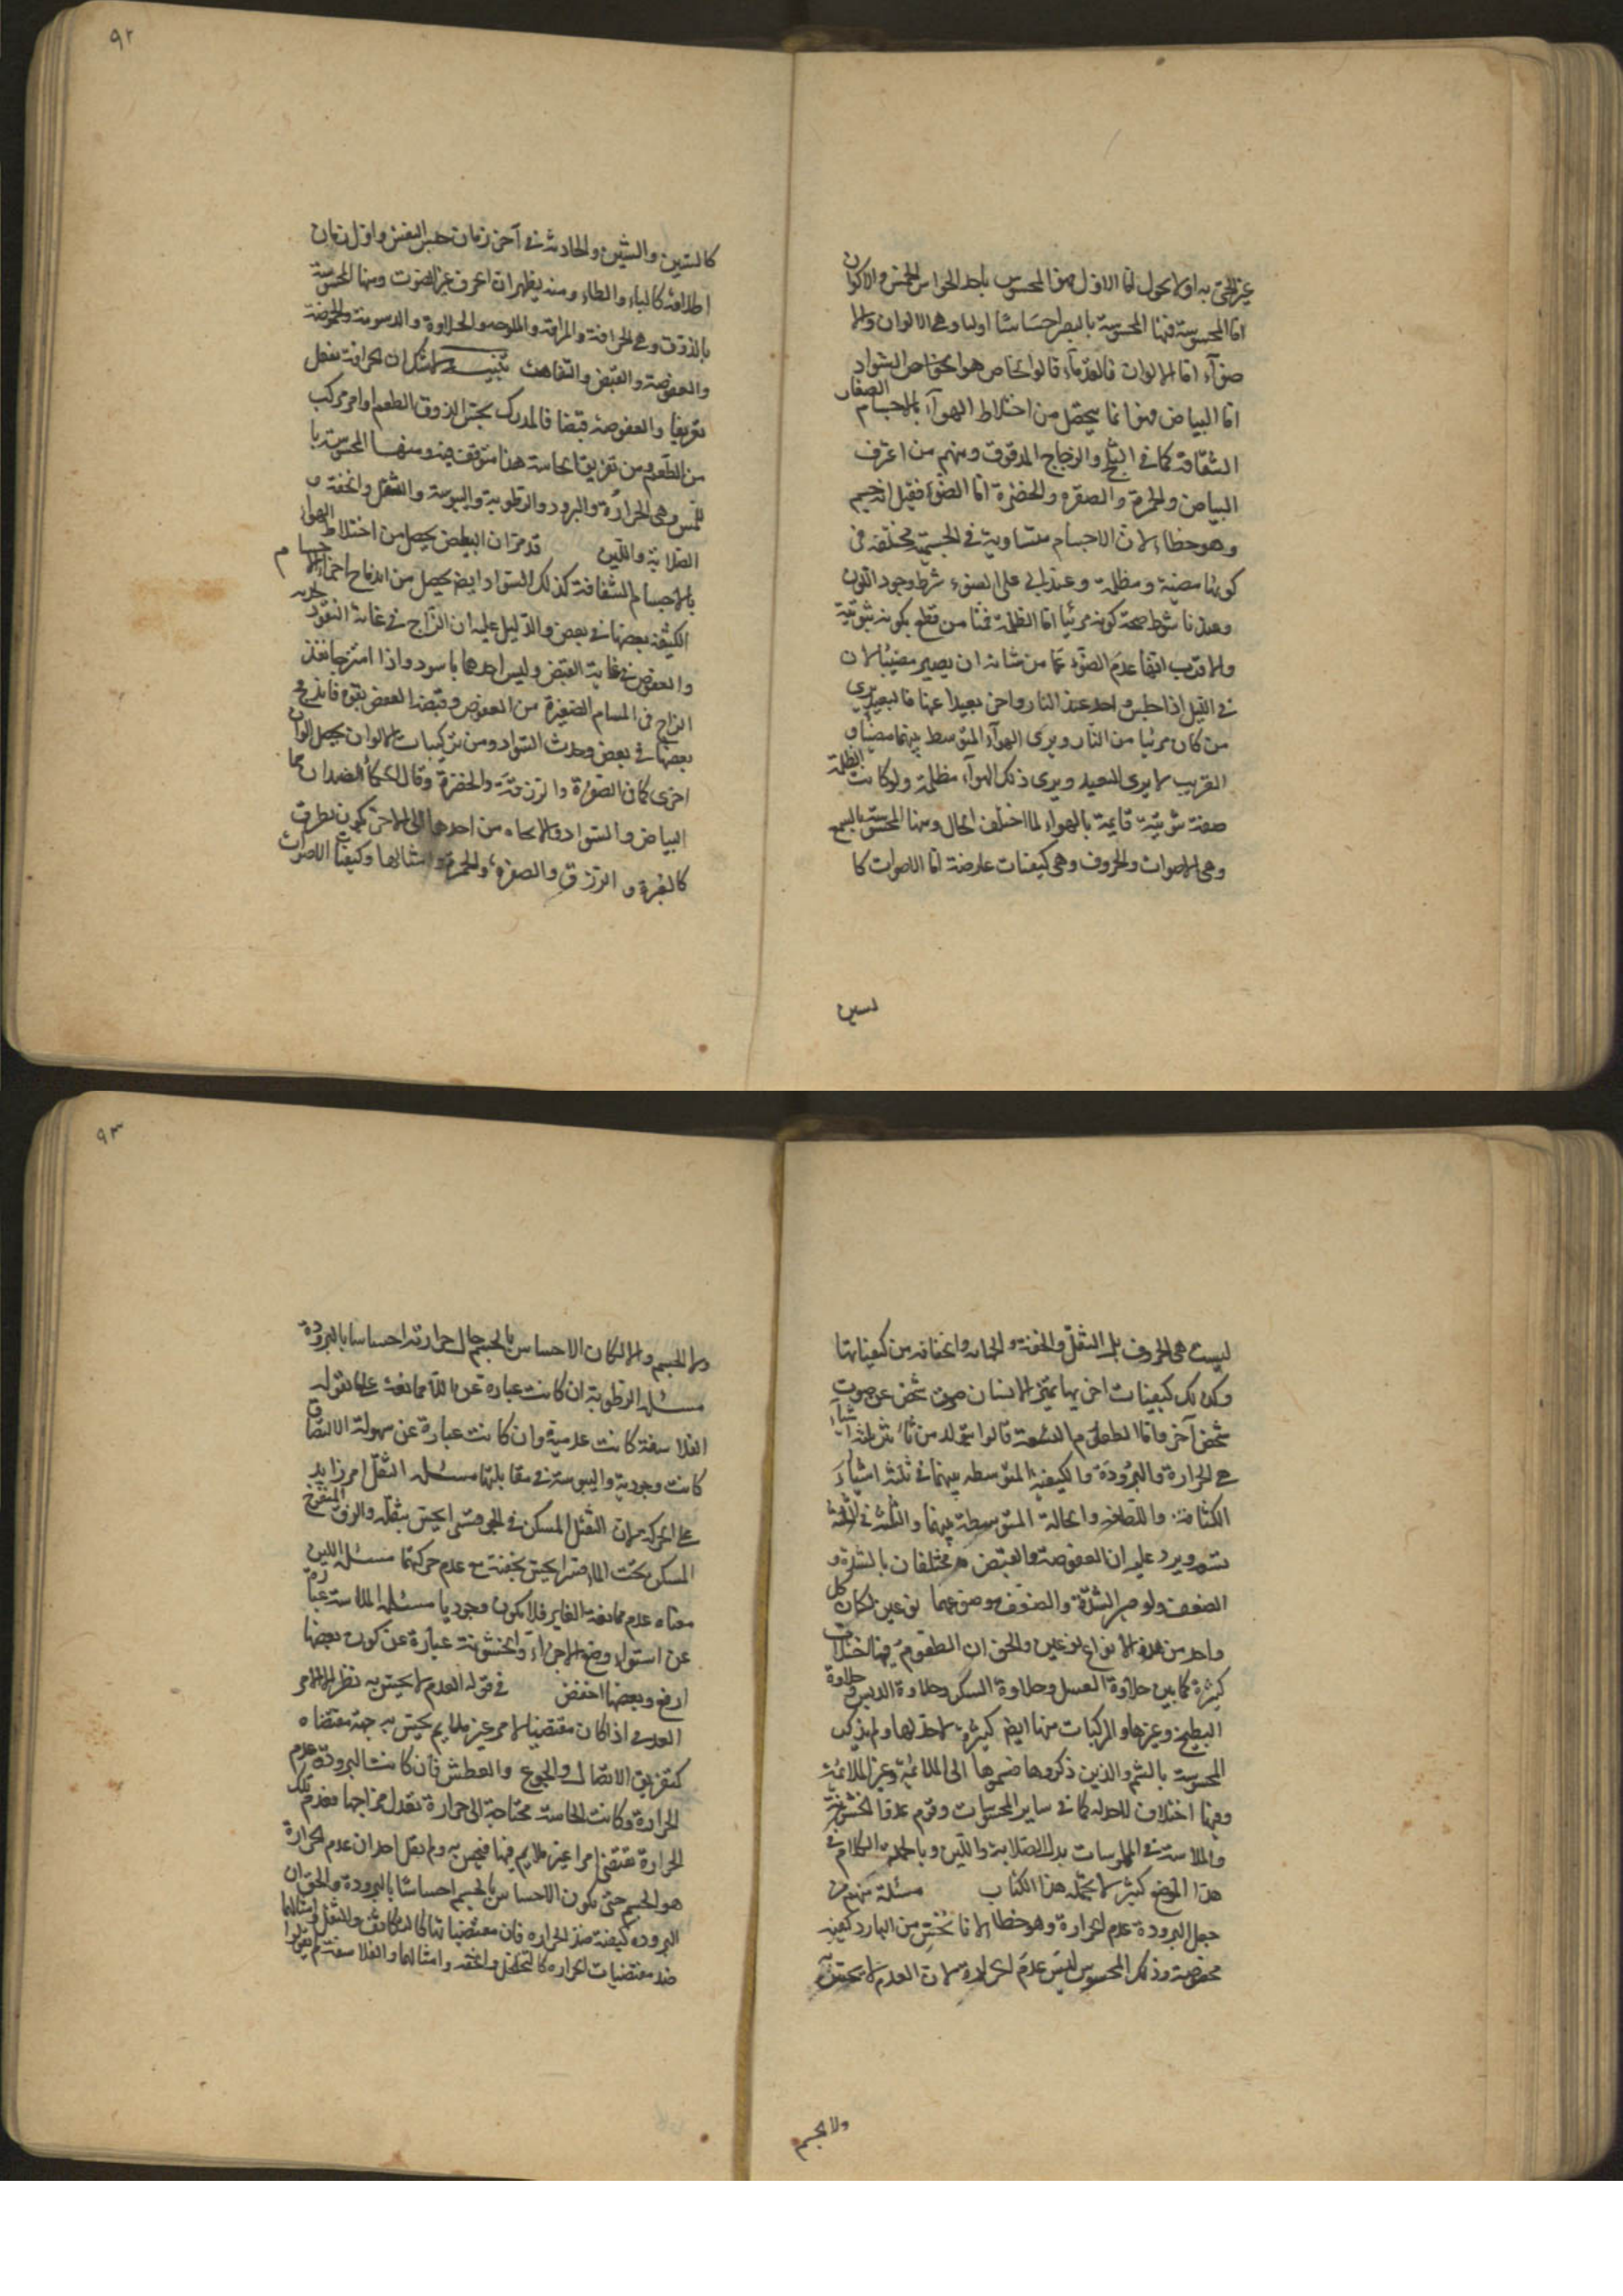 غير الحي به اولا يحول اما الاول فهو المحسوس باحد الحواس الخمس والاكوان
اما المحسوسة فمنها المحسوسة بالبصر احساسا اوليا وهي الالوان والا
ضوآء اما الالوان فالقدمآء قالوا الخاص هوا لخواص السواد
اما البياض فهو انما يحصل من اختلاط الهوآء بالاجسام الصغار
الشفافة كما في الثلج والزجاج المدقوق ومنهم من اعترف
البياض والحمرة والصفره والخضرة اما الضوء فقيل انه جسم
وهو خطاء لان الاجسام متساوية في الجسمية مختلفة في
كونها مضيئة ومظلمة وعند ابي علي الضوء شرط وجود اللون
وعندنا شرط صحة كونه مرئيا اما الظلمة فمنا من قطع بكونه ثبوتية
والاقرب انها عدم الضوء عما من شانه ان يصير مضيئا لان
في الليل اذا جلس واحد عند النار واخر بعيدا عنها فالبعيد يرى
من كان مرئيا من النار ويرى الهوآء المتوسط بينهما مضيئا و
القريب لا يرى البعيد ويرى ذلك الهوآء مظلمة ولو كانت الظلمة
صفة ثبوتية قايمة بالهواء لما اختلف الحال ومنها المحسوسة بالسمع
وهي الاصوات والحروف وهي كيفيات عارضة اما الاصوات كا
لسين
٩٢
كالسين والشين والحادثة في آخر زمان حبس النفس واول زمان
اطلاقه كالباء والطاء ومنه يظهر ان الحرف غير الصوت ومنها المحسوسة
بالذوق وهي الحرافة والمرارة والملوحه والحلاوة والدسومة والحموضة
والعفوصة والقبض والتفاهة تنبيـــه لا شك ان الحرافة تفعل
تفريقا والعفوصة قبضا فالمدرك بحس الذوق الطعم او امر مركب
من الطعم ومن تفريق الحاسة هذا متوقف فيه ومنهـا المحسوسة با
للمس وهي الحرارة والبرودة والرطوبة واليبوسة والثقل والخفة و
الصلابة واللين قد مر ان البياض يحصل من اختلاط الهواء
بالاجسام الشفافة كذلك السواد ايضا يحصل من اندماج اجزاء الاجسام
الكثيفة بعضها في بعض والدليل عليه ان الزاج في غاية النفوذ
والعفص في غاية القبض وليس احدهما باسود واذا امتزجا نفذ
الزاج في المسام الصغيرة من العفص وقبضه العفص بقوة فاندمج
بعضها في بعض وحدث السواد ومن تركيبات الالوان يحصل الوان
اخرى كما في الصفرة والزرقة والخضرة وقال الحكمآء الضدان هما
البياض والسواد والاتجاه من احدهما الى الاخر تكون بطرق
كالغبرة والزرقة والصفرة والحمرة وامثالها وكيفيات الاصوات
ليست هي الحروف بل الثقل والخفة والجهارة والخفاتة من كيفياتها
وكذلك كيفيات اخر بها يميز الانسان صوت شخص عن صوت
شخص آخر واما الطعوم التسعة قالوا تتولد من تأثير ثلثة اشياء
هي الحرارة والبرودة والكيفية المتوسطه بينهما في ثلثة اشياء
الكثافة واللطافه والحالة المتوسطة بينهما والثلثة في الثلثة
تسعه ويرد عليه ان العفوصة والقبض مختلفان بالشدة و
الضعف ولو صير الشدة والضعف موضوعهما نوعين لكان كل
واحد من هذه الانواع نوعين والحق ان الطعوم فيها اختلافات
كثيرة كما بين حلاوة العسل وحلاوة السكر وحلاوة الدبس وحلاوة
البطيخ وغيرها والمركبات منها ايضا كثيرة لا حد لها ولم يذكر
المحسوسة بالشم والذين ذكروها ضموها الى الملائمة وغير الملائمة
وفيها اختلاف للحد له كما في ساير المحسوسات وقوم عدوا الخشونة
والملاسة في الملموسات بدل الصلابة واللين وبالجملة الكلام في
هذا الموضع كثير لا يحتمله هذا الكتاب مسئلة منهم من
جعل البرودة عدم الحرارة وهو خطا لانا نحس من البارد كيفية
مخصوصة وذلك المحسوس ليس عدم الحرارة لان العدم لا يحس به
ولا الجسم
٩٣
ولا الجسم والا لكان الاحساس بالجسم حال حرارته احساسا بالبرودة
مسئلـه الرطوبة ان كانت عبارة عن اللا ممانعة على ما تقوله
الفلاسفة كانت عدمية وان كانت عبارة عن سهولة الالتصاق
كانت وجودية واليبوسة في مقابلتها مسئله الثقل امر زايد
على الحركة لان الثقيل المسكن في الجو قسرا يحس بثقله والزق المنفوخ
المسكن تحت الماء قسرا يحس بخفته مع عدم حركتهما مسئله اللين
معناه عدم ممانعة الغاير فلا يكون وجوديا مسئله الملاسة عبارة
عن استواء وضع الاجزاء والخشونة عبارة عن كون بعضها
ارفع وبعضها اخفض في قوله العدم لا يحس به نظر لان الامر
العدمى اذا كان مقتضيا لامر غير ملايم يحس به جهة مقتضاه
كتفريق الاتصال والجوع والعطش فان كانت البرودة عدم
الحرارة وكانت الحاسة محتاجة الى حرارة تعدل مزاجها فعدم تلك
الحرارة تقتضي امرا غير ملايم فيها فيحس به ولم يقل احد ان عدم الحرارة
هو الجسم حتى يكون الاحساس بالجسم احساسا بالبرودة والحق ان
البرودة كيفية ضد الحرارة فان مقتضياتها كالتكاثف والثقل وامثالهما
ضد مقتضيات الحرارة كالتخلخل والخفة وامثالها والفلاسفة لم يقولوا